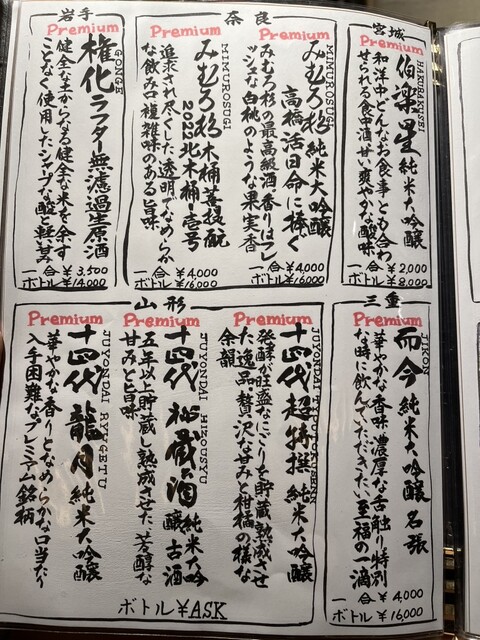 宮城
Premium
HAKURAKUSEI
伯楽星 純米大吟醸
和洋中どんなお食事とも合わ
せられる食中酒 甘い爽やかな酸味
一合 ¥2,000
ボトル ¥8,000
奈良
Premium
MIMUROSUGI
みむろ杉 純米大吟醸
高橋活日命に捧ぐ
みむろ杉の最高級酒 香りはフレ
ッシュな白桃のような果実香
一合 ¥4,000
ボトル ¥16,000
Premium
MIMUROSUGI
みむろ杉 木桶菩提酛
2022 北木桶・壱号
追求され尽くした透明でなめらか
な飲み口 複雑味のある旨味
一合 ¥4,000
ボトル ¥16,000
岩手
Premium
GONGE
権化 ラフター 無濾過生原酒
健全な土からなる健全な米を余す
ことなく使用したシャープな酸と軽い甘み
一合 ¥3,500
ボトル ¥14,000
三重
Premium
JIKON
而今 純米大吟醸 名張
華やかな香味 濃厚な舌触り 特別
な時に飲んでいただきたい至福の一滴
一合 ¥4,000
ボトル ¥16,000
山形
Premium
十四代 超特撰 純米大吟醸
発酵が旺盛なにごりを貯蔵熟成させ
た逸品 贅沢な甘みと柑橘の様な
余韻
Premium
JUYONDAI HIZOUSYU
十四代 秘蔵酒 純米大吟醸 古酒
五年以上貯蔵し熟成させた、芳醇な
甘みと旨味
Premium
JUYONDAI RYUGETU
十四代 龍月 純米大吟醸
華やかな香りとなめらかな口当たり
入手困難なプレミアム銘柄
ボトル ¥ASK